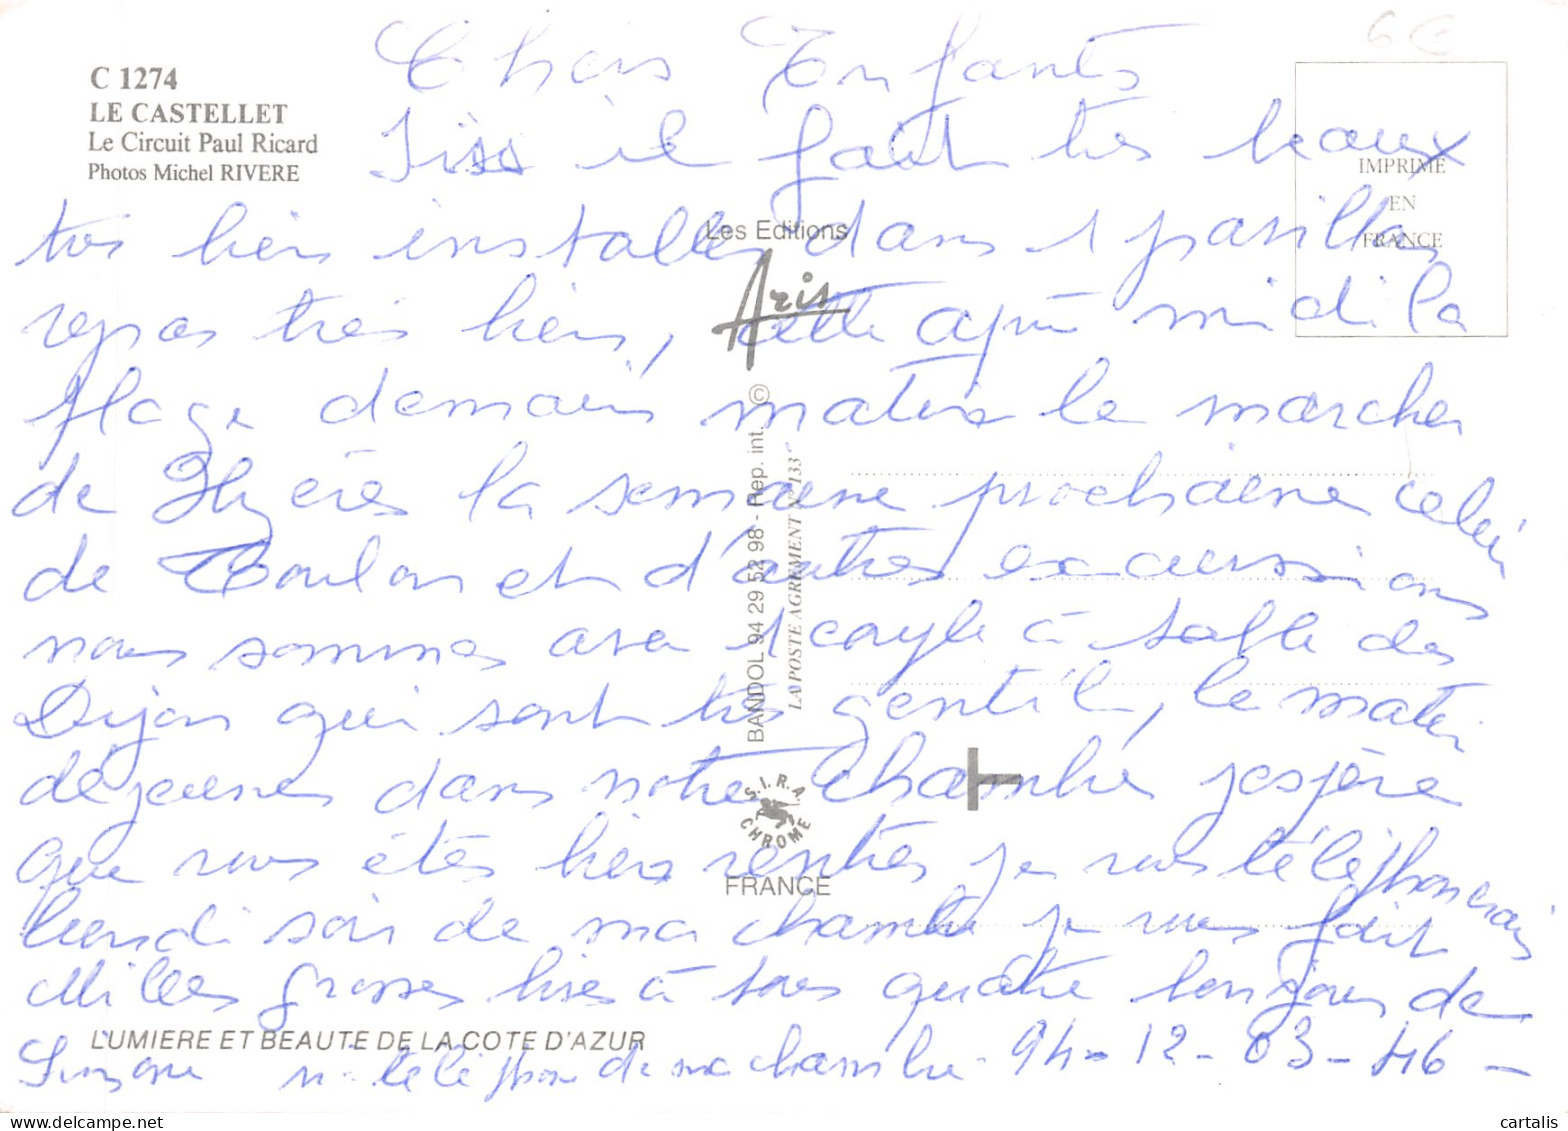 6 €
C 1274
LE CASTELLET
Le Circuit Paul Ricard
Photos Michel RIVERE
IMPRIMÉ
EN
FRANCE
Les Editions
Aris
BANDOL 94 29 52 98 - Rep. int. ©
LA POSTE AGREMENT N° 133
S.I.R.A.
CHROME
FRANCE
LUMIERE ET BEAUTE DE LA COTE D'AZUR
Chers Enfants
il fait très beaux
très bien installés dans 1 pavillon
repas très bien, cette après midi la
plage demain matin le marcher
de Hyères la semaine prochaine celui
de Toulon et d'autres excursions
nous sommes avec 1 couple à table de
Dijon qui sont très gentil, le matin
dejeuner dans notre chambre j'espère
que vous êtes bien rentrés je vous téléphonerais
lundi soir de ma chambre je vous fait
Milles grosses bises à tous quatre bonjour de
Simone n° téléphone de ma chambre - 94-12-03-46 -